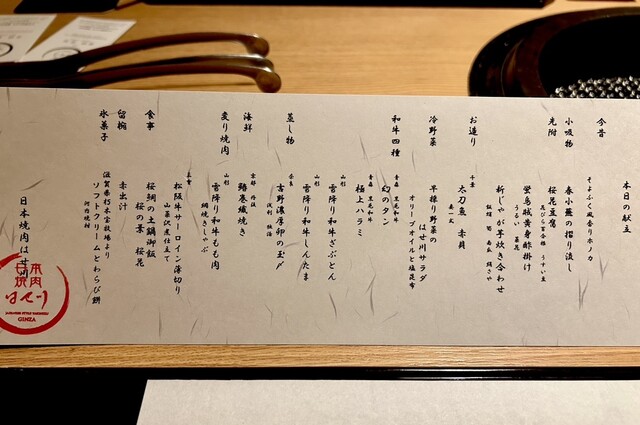 本日の献立
今昔
そよふく風香りホノカ
小吸物
春小蕪の摺り流し
先附
桜花豆腐
花びら百合根 うすい豆
蛍烏賊黄身酢掛け
うるい 菜花
新じゃが芋炊き合わせ
飯蛸 筍
お造り
千葉
太刀魚 赤貝
冷野菜
早採り野菜の
はせ川サラダ
オリーブオイルと塩昆布
和牛四種
青森 黒毛和牛
幻のタン
青森 黒毛和牛
極上ハラミ
山形
雪降り和牛ざぶとん
山形
雪降り和牛しんたま
蒸し物
奈良
古野濃厚卵の玉〆
浅利
海鮮
京都 丹波
鰆巻繊焼き
炙り焼肉
山形
雪降り和牛もも肉
網焼きしゃぶ
三重
松阪牛サーロイン薄切り
山菜沢煮仕立て
食事
桜鯛の土鍋御飯
桜の葉 桜花
留椀
赤出汁
氷菓子
滋賀県朽木宝牧場より
ソフトクリームとわらび餅
日本焼肉はせ川
日本
焼肉
はせ川
JAPANESE STYLE YAKINIKU
GINZA